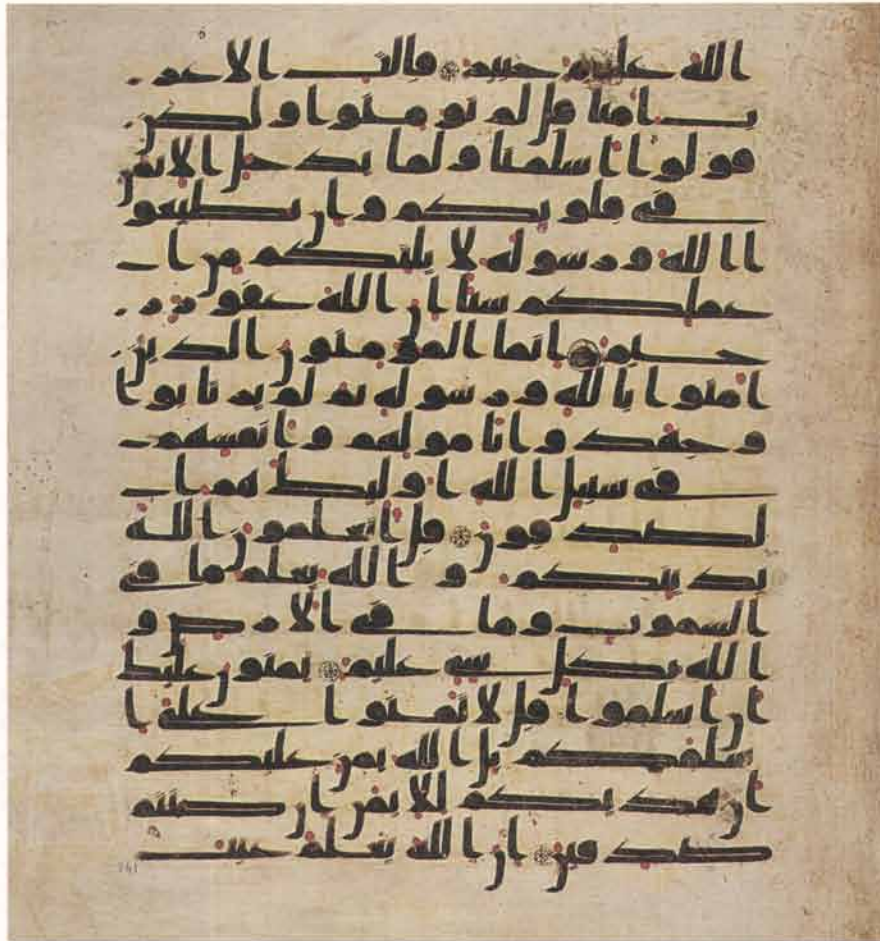 الله عليم خبير قالت الاعر
ب امنا قل لم تومنوا ولكن
قولوا اسلمنا ولما يدخل الايمن
في قلوبكم وان تطيعو
ا الله ورسوله لا يلتكم من ا
عملكم شيا ان الله غفور ر
حيم انما المومنون الذين
امنوا بالله ورسوله ثم لم يرتابوا
وجهدوا بامولهم وانفسهم
في سبيل الله اوليك هم ا
لصدقون قل اتعلمون الله
بدينكم والله يعلم ما في
السموت وما في الارض و
الله بكل شي عليم يمنون عليك
ان اسلموا قل لا تمنوا علي ا
سلمكم بل الله يمن عليكم
ان هديكم للايمن ان كنتم
صدقين ان الله يعلم غيب